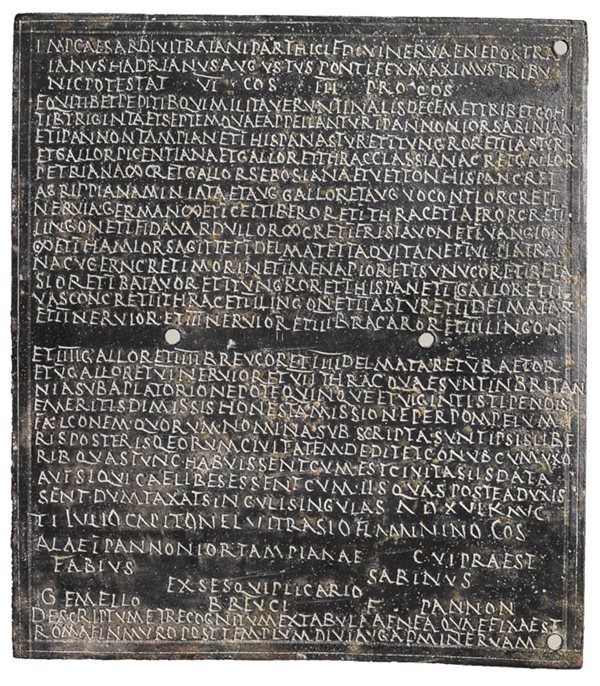 IMP CAESAR DIVI TRAIANI PARTHICI F DIVI NERVAE NEPOS TRA
IANVS HADRIANVS AVGVSTVS PONTIFEX MAXIMVS TRIBV
NIC POTESTAT VI COS III PROCOS
EQVITIB ET PEDITIB QVI MILITAVERVNT IN ALIS DECEM ET TRIB ET COH
TIB TRIGINTA ET SEPTEM QVAE APPELLANTVR I PANNONIOR SABINIAN
ET I PANNON TAMPIAN ET I HISPAN ASTVR ET I TVNGROR ET II ASTVR
ET GALLOR PICENTIANA ET GALLOR ET THRAC CLASSIANA C R ET GALLOR
PETRIANA ∞ C R ET GALLOR SEBOSIANA ET VETTON HISPAN C R ET
AGRIPPIANA MINIATA ET AVG GALLOR ET AVG VOCONTIOR C R ET I
NERVIA GERMAN ∞ ET I CELTIBEROR ET I THRAC ET I AFROR C R ET I
LINGON ET I FIDA VARDVLLOR ∞ C R ET I FRISIAVON ET I VANGION
∞ ET I HAMIOR SAGITT ET I DELMAT ET I AQVITAN ET I VLPIA TRAIA
NA CVGERN C R ET I MORIN ET I MENAPIOR ET I SVNVCOR ET I BETA
SIOR ET I BATAVOR ET I TVNGROR ET I HISPAN ET II GALLOR ET II
VASCON C R ET II THRAC ET II LINGON ET II ASTVR ET II DELMATAR
ET II NERVIOR ET III NERVIOR ET III BRACAROR ET III LINGON
ET IIII GALLOR ET IIII BREVCOR ET IIII DELMATAR ET V RAETOR
ET V GALLOR ET VI NERVIOR ET VII THRAC QVAE SVNT IN BRITAN
NIA SVB A PLATORIO NEPOTE QVINQVE ET VIGINTI STIPENDIS
EMERITIS DIMISSIS HONESTA MISSIONE PER POMPEIVM
FALCONEM QVORVM NOMINA SVB SCRIPTA SVNT IPSIS LIBE
RIS POSTERISQ EORVM CIVITATEM DEDIT ET CONVB CVM VXO
RIB QVAS TVNC HABVISSENT CVM EST CIVITAS IIS DATA
AVT SIQVI CAELIBES ESSENT CVM IIS QVAS POSTEA DVXIS
SENT DVMTAXAT SINGVLI SINGVLAS A D XVI K AVG
TI IVLIO CAPITONE L VITRASIO FLAMININO COS
ALAE I PANNONIOR TAMPIANAE CVI PRAEST
FABIVS SABINVS
EX SESQVIPLICARIO
GEMELLO BREVCI F PANNON
DESCRIPTVM ET RECOGNITVM EX TABVLA AENEA QVAE FIXA EST
ROMAE IN MVRO POST TEMPLVM DIVI AVG AD MINERVAM